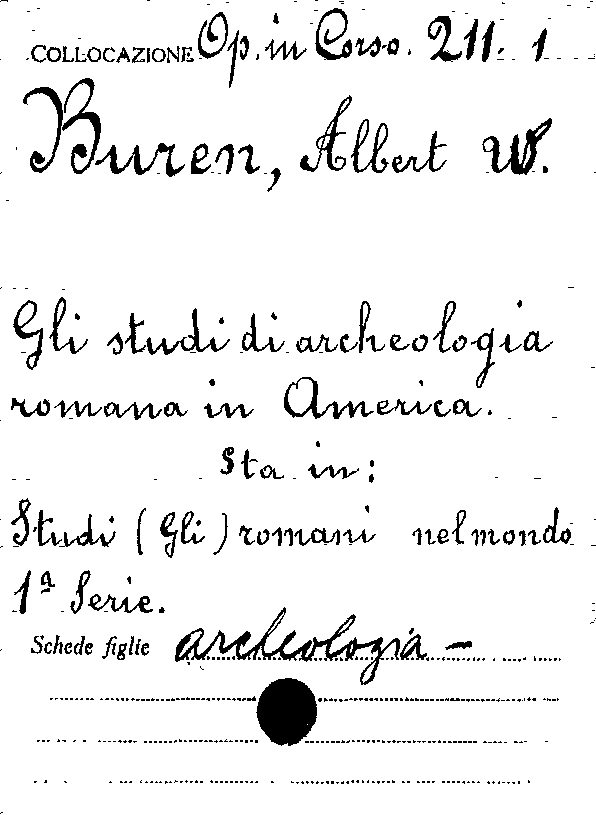 COLLOCAZIONE Op. in Corso. 211. 1
Buren, Albert W.
Gli studi di archeologia
romana in America.
Sta in:
Studi (Gli) romani nel mondo
1ª Serie.
Schede figlie archeologia –